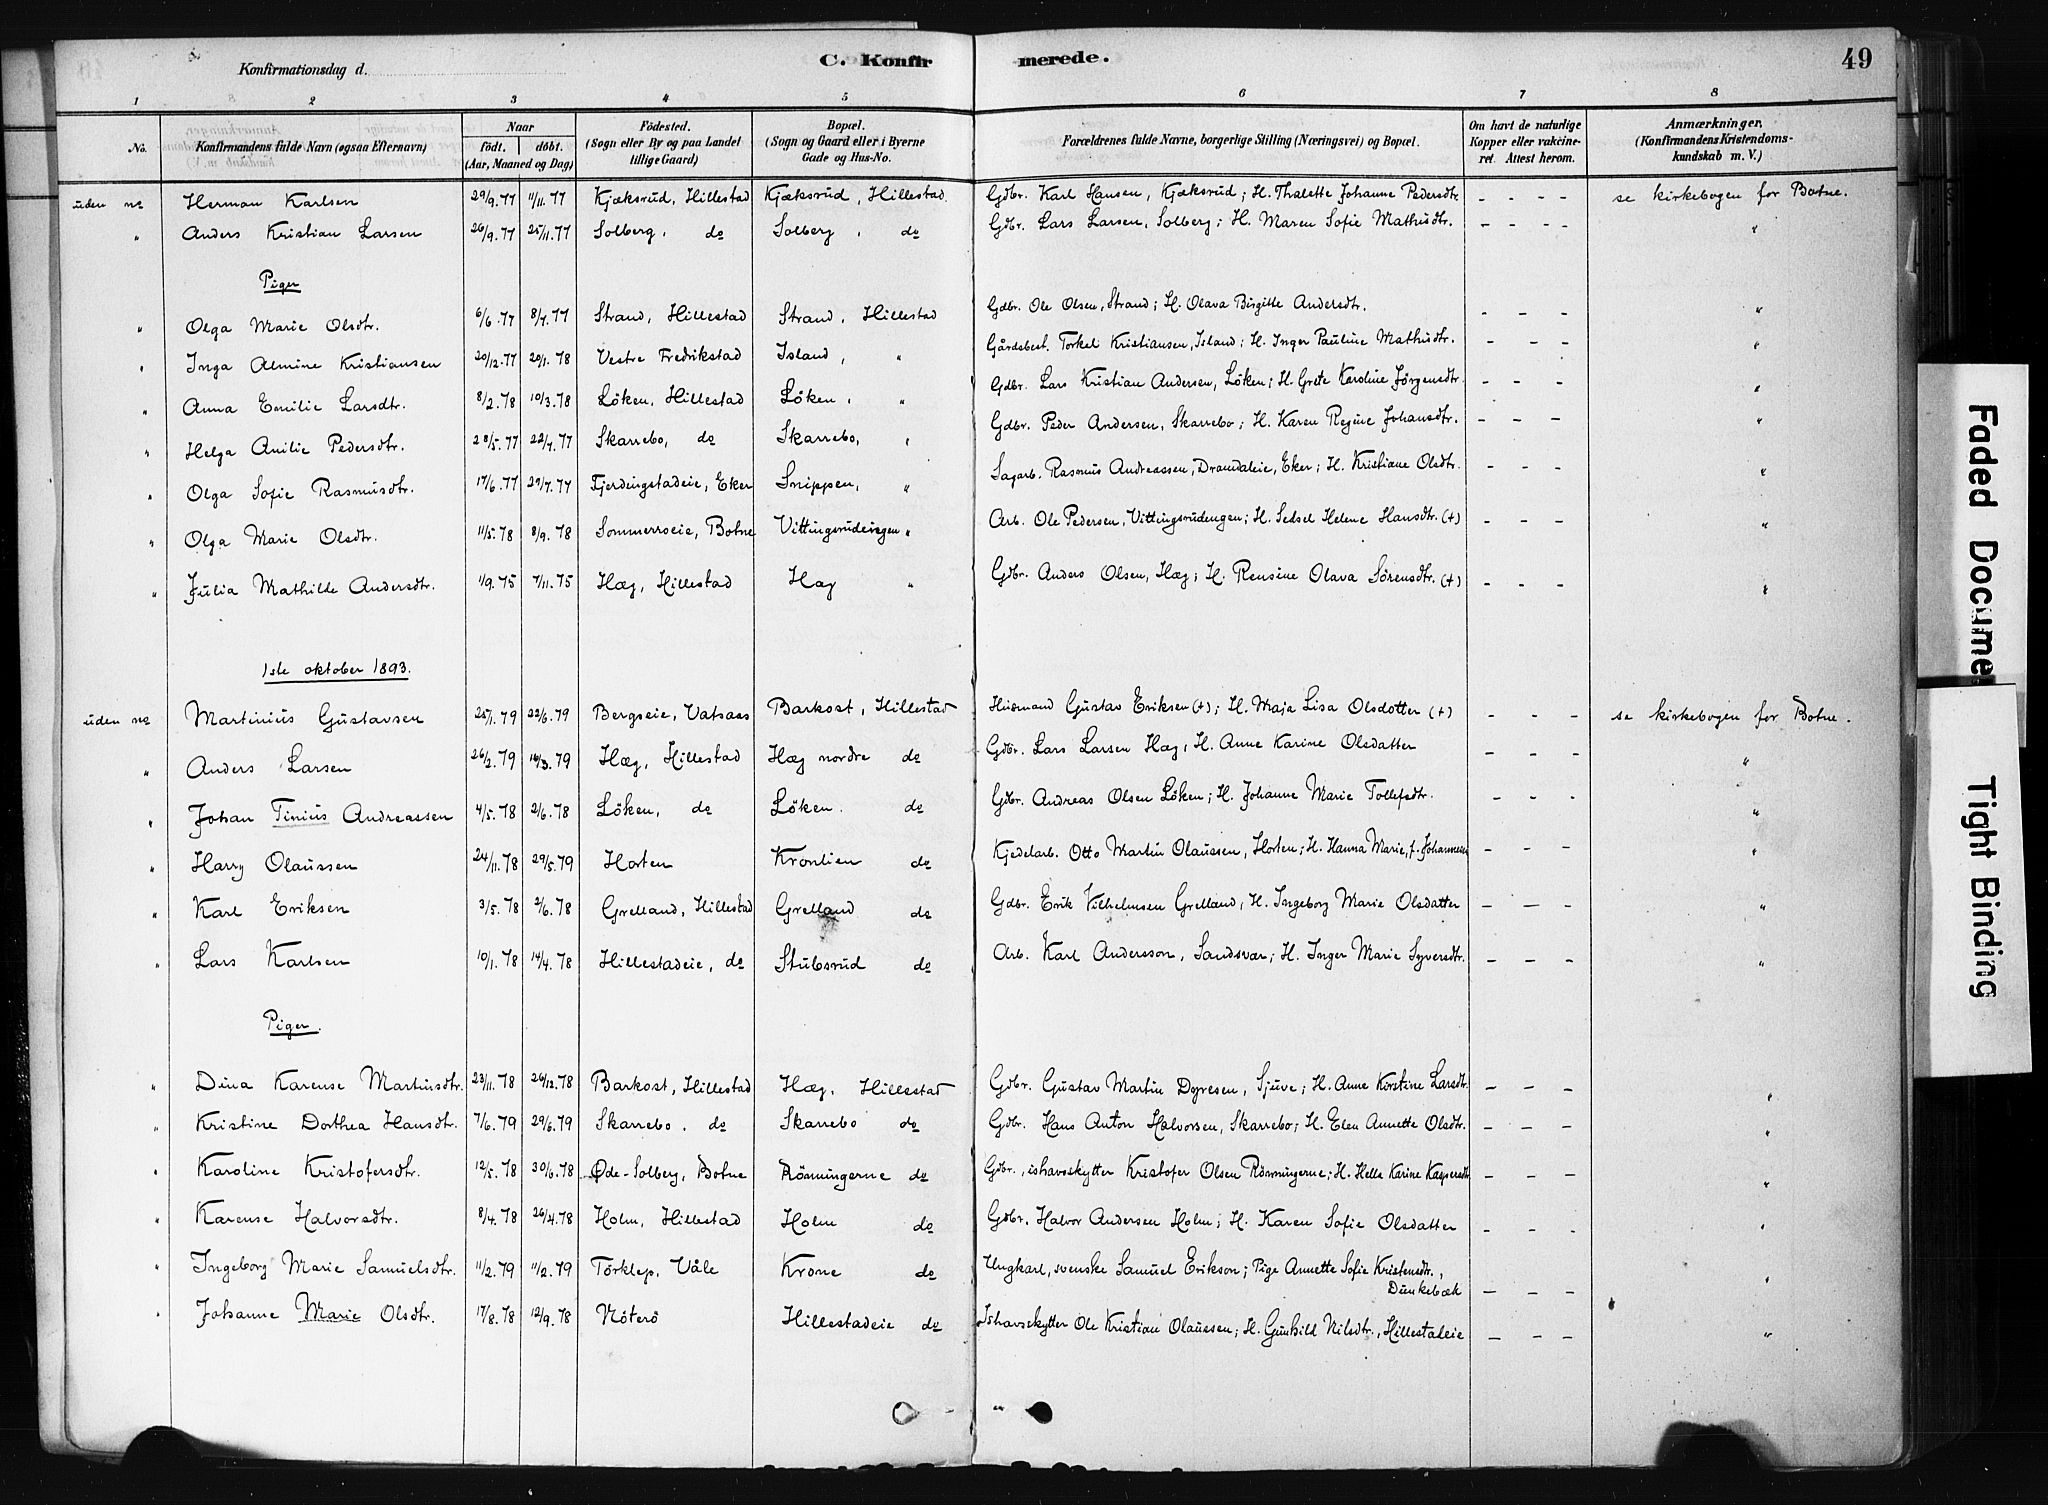 Konfirmationsdag d.
C. Konfir merede.
49
1 2 3 4 5 6 7 8
No. Konfirmandens fulde Navn (ogsaa Efternavn) Naar födt. döbt. (Aar, Maaned og Dag) Födested. (Sogn eller By og paa Landet tillige Gaard) Bopæl. (Sogn og Gaard eller i Byerne Gade og Hus-No. Forældrenes fulde Navne, borgerlige Stilling (Næringsvei) og Bopæl. Om havt de naturlige Kopper eller vakcineret. Attest herom. Anmærkninger. (Konfirmandens Kristendomskundskab m. V.)
uden no Herman Karlsen 29/9.77 11/11.77 Kjæksrud, Hillestad Kjæksrud, Hillestad. Gdbr. Karl Hansen, Kjæksrud; H. Thalette Johanne Pedersdtr. - - - - se kirkebogen for Botne.
" Anders Kristian Larsen 26/9.77 25/11.77 Solberg, do Solberg, do Gdbr. Lars Larsen, Solberg; H. Maren Sofie Mathisdtr. - - - - "
Piger
" Olga Marie Olsdtr. 6/6.77 8/7.77 Strand, Hillestad Strand, Hillestad Gdbr. Ole Olsen, Strand; H. Olava Birgitte Andersdtr. - - - "
" Inga Almine Kristiansen 20/12.77 20/1.78 Vestre Fredrikstad Island, " Gårdsbest. Torkel Kristiansen, Island; H. Inger Pauline Mathisdtr. - - - "
" Anna Emilie Larsdtr. 8/2.78 10/3.78 Löken, Hillestad Löken, " Gdbr. Lars Kristian Andersen, Löken; H. Grete Karoline Jørgensdtr. - - - "
" Helga Anilie Pedersdtr. 28/5.77 22/7.77 Skarrebo, do Skarrebo, " Gdbr. Peder Andersen, Skarrebo; H. Karen Regine Johansdtr. - - - "
" Olga Sofie Rasmusdtr. 17/6.77 29/7.77 Fjerdingstadeie, Eker Snippen, " Sagarb. Rasmus Andreassen, Dramdaleie, Eker; H. Kristiane Olsdtr. - - - "
" Olga Marie Olsdtr. 11/5.78 8/9.78 Sommerroeie, Botne Vittingsrudengen " Arb. Ole Pedersen, Vittingsrudengen; H. Sedsel Helene Hansdtr. (+) - - - "
" Julia Mathilde Andersdtr. 1/9.75 7/11.75 Hæg, Hillestad Hæg " Gdbr. Anders Olsen, Hæg; H. Rensine Olava Sörensdtr. (+) - - - "
1ste oktober 1893.
uden no Martinius Gustavsen 25/1.79 22/6.79 Bergseie, Vatsaas Barkost, Hillestad Husmand Gustav Eriksen (+); H. Maja Lisa Olsdotter (+) - - - se kirkebogen for Botne.
" Anders Larsen 26/2.79 16/3.79 Hæg, Hillestad Hæg nordre do Gdbr. Lars Larsen Hæg; H. Anne Karine Olsdatter - - - "
" Johan Tinius Andreassen 4/5.78 2/6.78 Löken, do Löken. do Gdbr. Andreas Olsen Löken; H. Johanne Marie Tollefsdtr. - - - "
" Harry Olaussen 24/11.78 29/5.79 Horten Kronlien do Kjedelarb. Otto Martin Olaussen, Horten; H. Hanna Marie, f. Johannesen - - - "
" Karl Eriksen 3/5.78 2/6.78 Grelland, Hillestad Grelland do Gdbr. Erik Vilhelmsen Grelland, H. Ingeborg Marie Olsdatter - - - "
" Lars Karlsen 10/1.78 14/4.78 Hillestadeie, do Stubsrud do Arb. Karl Andersson, Sandsvær; H. Inger Marie Syversdtr. - - - "
Piger.
" Dina Karense Martinsdtr. 23/11.78 26/12.78 Barkost, Hillestad Hæg, Hillestad Gdbr. Gustav Martin Dyresen, Sjuve; H. Anne Kirstine Larsdtr. - - - "
" Kristine Dorthea Hansdtr. 7/6.79 29/6.79 Skarrebo, do Skarrebo do Gdbr. Hans Anton Halvorsen, Skarrebo; H. Elen Annette Olsdtr. - - - "
" Karoline Kristofersdtr. 12/5.78 30/6.78 Øde-Solberg, Botne Rönningerne do Gdbr., ishavsskytter Kristofer Olsen Rönningerne; H. Helle Karine Kaspersdtr. - - - "
" Karense Halvorsdtr. 8/4.78 26/4.78 Holm, Hillestad Holm do Gdbr. Halvor Andersen Holm; H. Karen Sofie Olsdatter - - - "
" Ingeborg Marie Samuelsdtr. 11/2.79 11/2.79 Törklep, Våle Krone do Ungkarl, svenske Samuel Erikson; Pige Annette Sofie Kristensdtr., Dunkebæk - - - "
" Johanne Marie Olsdtr. 17/8.78 12/9.78 Nöterö Hillestadeie do Ishavsskytter Ole Kristian Olaussen; H. Gunhild Nilsdtr., Hillestaleie - - - "
Faded Docume
Tight Binding